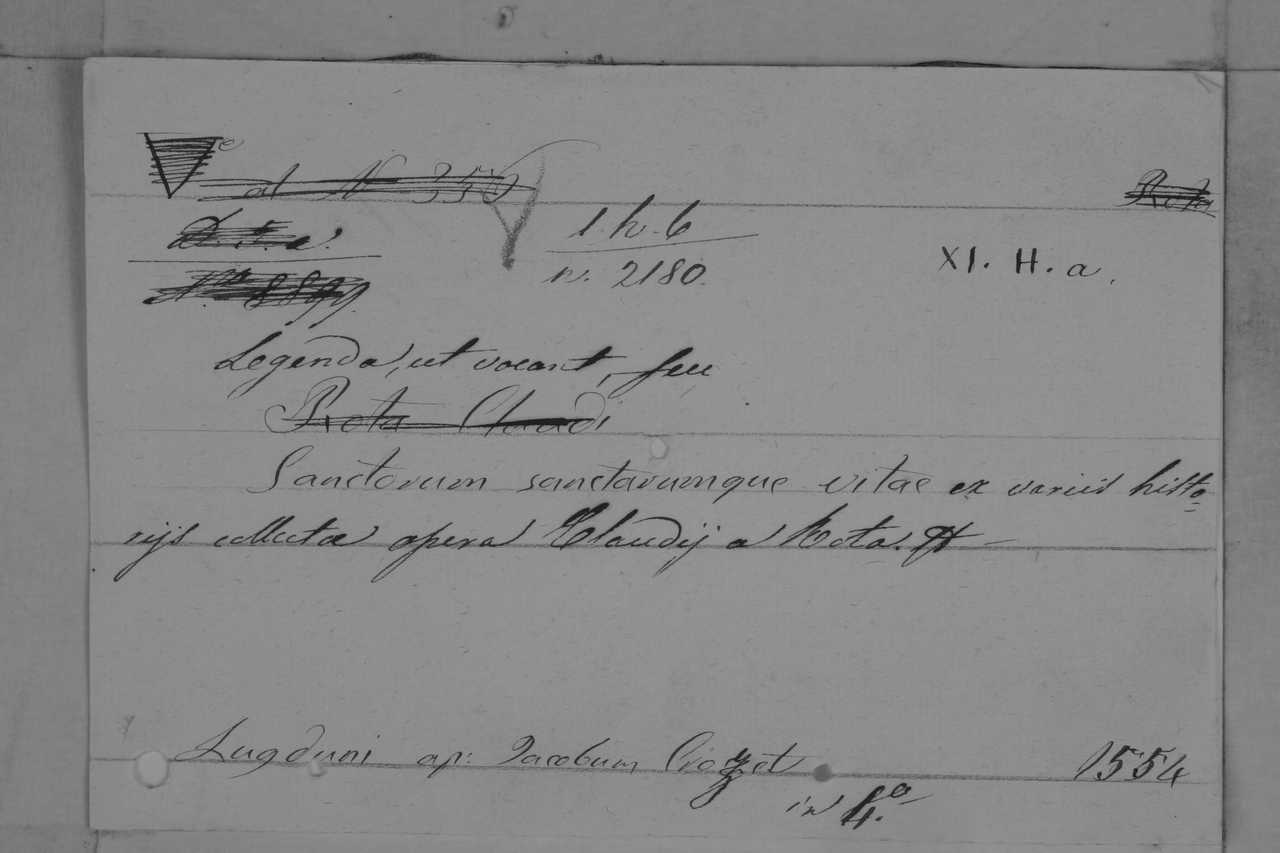 ad N 356
Rota
D. t. a.
1. h. 6
XI. H. a.
No 8899.
n. 2180.
Legenda, ut vocant, seu
Rota Claudi
Sanctorum sanctarumque vitae ex variis histo-
rijs collectae opera Claudij a Rota.
Lugduni ap: Jacobum Crozet 1554
in 4.o